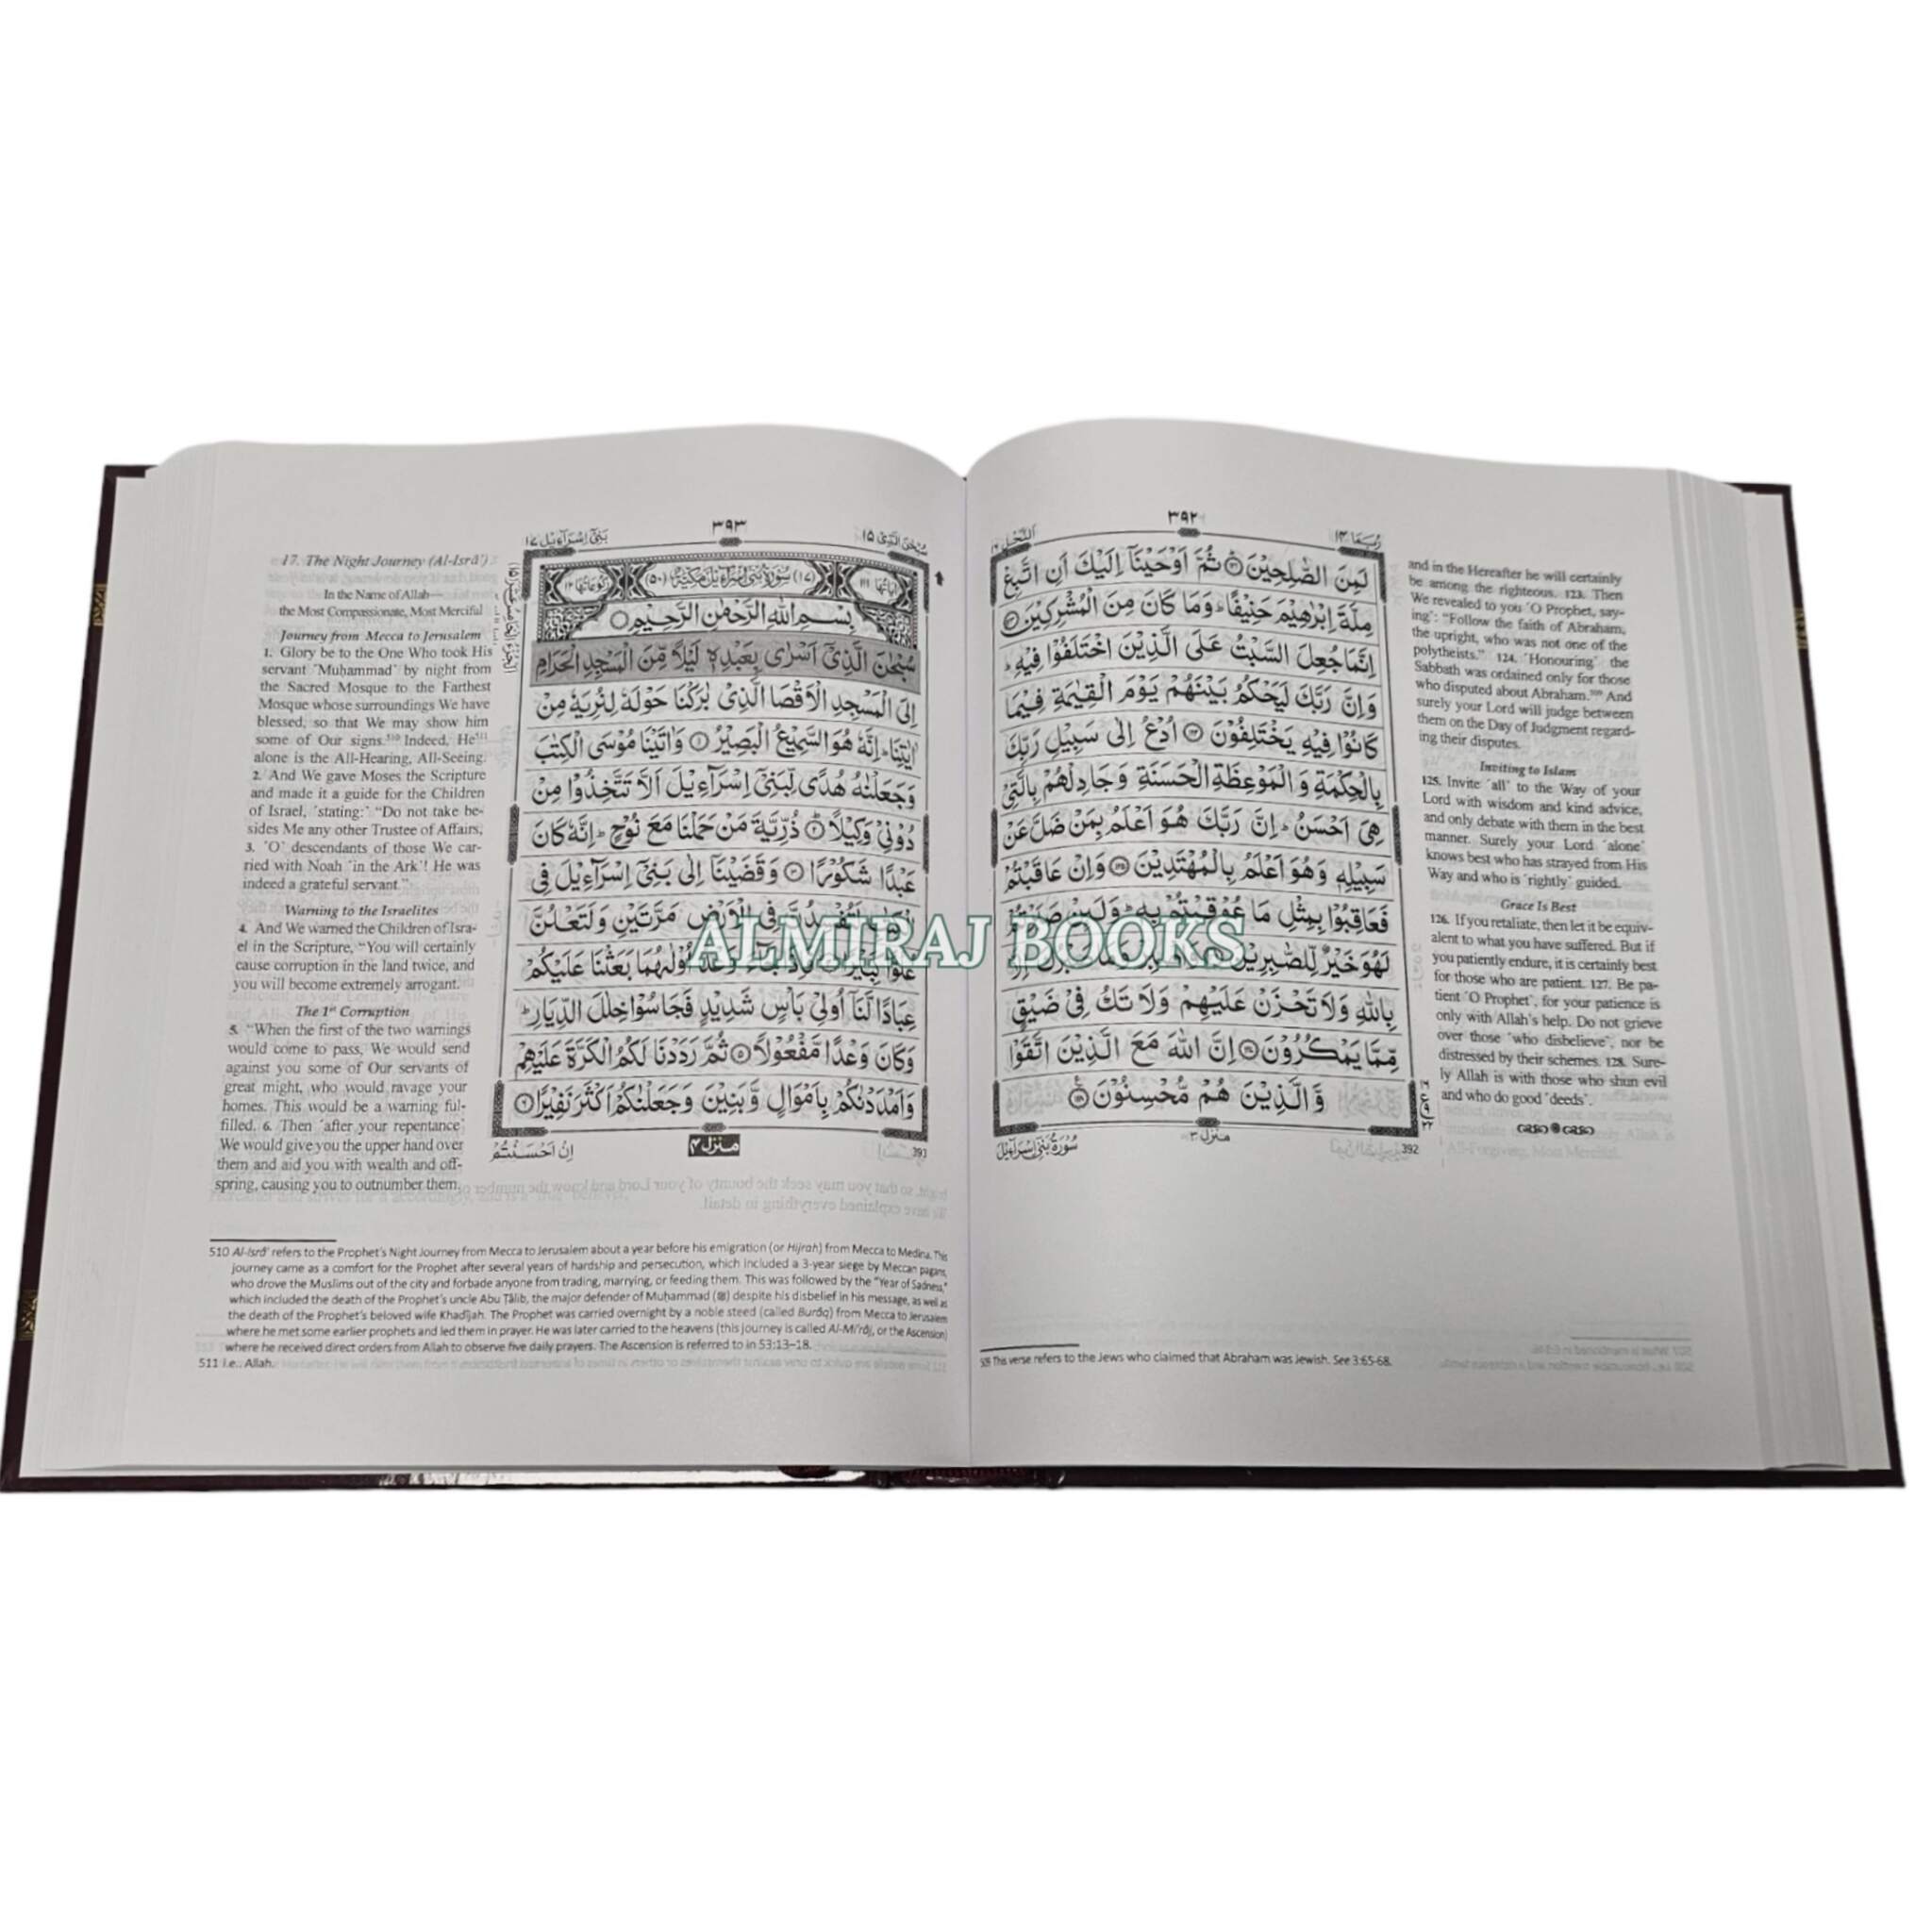 ۳۹۲
رُبَمَا ۱۴
اَلنَّحۡل
لَمِنَ الصّٰلِحِيۡنَ ثُمَّ اَوۡحَيۡنَاۤ اِلَيۡكَ اَنِ اتَّبِعۡ
مِلَّةَ اِبۡرٰهِيۡمَ حَنِيۡفًا ؕ وَمَا كَانَ مِنَ الۡمُشۡرِكِيۡنَ
اِنَّمَا جُعِلَ السَّبۡتُ عَلَى الَّذِيۡنَ اخۡتَلَفُوۡا فِيۡهِ ؕ
وَاِنَّ رَبَّكَ لَيَحۡكُمُ بَيۡنَهُمۡ يَوۡمَ الۡقِيٰمَةِ فِيۡمَا
كَانُوۡا فِيۡهِ يَخۡتَلِفُوۡنَ اُدۡعُ اِلٰى سَبِيۡلِ رَبِّكَ
بِالۡحِكۡمَةِ وَالۡمَوۡعِظَةِ الۡحَسَنَةِ وَجَادِلۡهُمۡ بِالَّتِىۡ
هِىَ اَحۡسَنُ ؕ اِنَّ رَبَّكَ هُوَ اَعۡلَمُ بِمَنۡ ضَلَّ عَنۡ
سَبِيۡلِهٖ وَهُوَ اَعۡلَمُ بِالۡمُهۡتَدِيۡنَ وَاِنۡ عَاقَبۡتُمۡ
فَعَاقِبُوۡا بِمِثۡلِ مَا عُوۡقِبۡتُمۡ بِهٖ ؕ وَلَئِنۡ صَبَرۡتُمۡ
لَهُوَ خَيۡرٌ لِّلصّٰبِرِيۡنَ
بِاللّٰهِ وَلَا تَحۡزَنۡ عَلَيۡهِمۡ وَلَا تَكُ فِىۡ ضَيۡقٍ
مِّمَّا يَمۡكُرُوۡنَ اِنَّ اللّٰهَ مَعَ الَّذِيۡنَ اتَّقَوۡا
وَّالَّذِيۡنَ هُمۡ مُّحۡسِنُوۡنَ
منزل ۳
سُوۡرَةُ بَنِىۡٓ اِسۡرَآءِيۡل
392
and in the Hereafter he will certainly
be among the righteous. 123. Then
We revealed to you ˹O Prophet, say-
ing˺: “Follow the faith of Abraham,
the upright, who was not one of the
polytheists.” 124. ˹Honouring˺ the
Sabbath was ordained only for those
who disputed about Abraham.⁵⁰⁹ And
surely your Lord will judge between
them on the Day of Judgment regard-
ing their disputes.
Inviting to Islam
125. Invite ˹all˺ to the Way of your
Lord with wisdom and kind advice,
and only debate with them in the best
manner. Surely your Lord ˹alone˺
knows best who has strayed from His
Way and who is ˹rightly˺ guided.
Grace Is Best
126. If you retaliate, then let it be equiv-
alent to what you have suffered. But if
you patiently endure, it is certainly best
for those who are patient. 127. Be pa-
tient ˹O Prophet˺, for your patience is
only with Allah’s help. Do not grieve
over those ˹who disbelieve˺, nor be
distressed by their schemes. 128. Sure-
ly Allah is with those who shun evil
and who do good ˹deeds˺.
509 This verse refers to the Jews who claimed that Abraham was Jewish. See 3:65-68.
۳۹۳
سُبۡحٰنَ الَّذِىۡۤ ۱۵
بَنِىۡٓ اِسۡرَآءِيۡل ۱۷
اٰيَاتُهَا ۱۱۱
(۱۷) سُوۡرَةُ بَنِىۡٓ اِسۡرَآءِيۡلَ مَكِّيَّةٌ (۵۰)
رُكُوۡعَاتُهَا ۱۲
بِسۡمِ اللّٰهِ الرَّحۡمٰنِ الرَّحِيۡمِ
سُبۡحٰنَ الَّذِىۡۤ اَسۡرٰى بِعَبۡدِهٖ لَيۡلًا مِّنَ الۡمَسۡجِدِ الۡحَرَامِ
اِلَى الۡمَسۡجِدِ الۡاَقۡصَا الَّذِىۡ بٰرَكۡنَا حَوۡلَهٗ لِنُرِيَهٗ مِنۡ
اٰيٰتِنَا ؕ اِنَّهٗ هُوَ السَّمِيۡعُ الۡبَصِيۡرُ ۱ وَاٰتَيۡنَا مُوۡسَى الۡكِتٰبَ
وَجَعَلۡنٰهُ هُدًى لِّبَنِىۡۤ اِسۡرَآءِيۡلَ اَلَّا تَتَّخِذُوۡا مِنۡ
دُوۡنِىۡ وَكِيۡلًا ۲ ذُرِّيَّةَ مَنۡ حَمَلۡنَا مَعَ نُوۡحٍ ؕ اِنَّهٗ كَانَ
عَبۡدًا شَكُوۡرًا ۳ وَقَضَيۡنَاۤ اِلٰى بَنِىۡۤ اِسۡرَآءِيۡلَ فِى
الۡكِتٰبِ لَتُفۡسِدُنَّ فِى الۡاَرۡضِ مَرَّتَيۡنِ وَلَتَعۡلُنَّ
عُلُوًّا كَبِيۡرًا اُوۡلٰٮهُمَا بَعَثۡنَا عَلَيۡكُمۡ
عِبَادًا لَّنَاۤ اُولِىۡ بَاۡسٍ شَدِيۡدٍ فَجَاسُوۡا خِلٰلَ الدِّيَارِ ؕ
وَكَانَ وَعۡدًا مَّفۡعُوۡلًا ۵ ثُمَّ رَدَدۡنَا لَكُمُ الۡكَرَّةَ عَلَيۡهِمۡ
وَاَمۡدَدۡنٰكُمۡ بِاَمۡوَالٍ وَّبَنِيۡنَ وَجَعَلۡنٰكُمۡ اَكۡثَرَ نَفِيۡرًا ۶
منزل ۴
اِنۡ اَحۡسَنۡتُمۡ
393
17. The Night Journey (Al-Isrâ’)
In the Name of Allah—
the Most Compassionate, Most Merciful
Journey from Mecca to Jerusalem
1. Glory be to the One Who took His
servant ˹Muḥammad˺ by night from
the Sacred Mosque to the Farthest
Mosque whose surroundings We have
blessed, so that We may show him
some of Our signs.⁵¹⁰ Indeed, He⁵¹¹
alone is the All-Hearing, All-Seeing.
2. And We gave Moses the Scripture
and made it a guide for the Children
of Israel, ˹stating:˺ “Do not take be-
sides Me any other Trustee of Affairs,
3. ˹O˺ descendants of those We car-
ried with Noah ˹in the Ark˺! He was
indeed a grateful servant.”
Warning to the Israelites
4. And We warned the Children of Isra-
el in the Scripture, “You will certainly
cause corruption in the land twice, and
you will become extremely arrogant.
The 1st Corruption
5. “When the first of the two warnings
would come to pass, We would send
against you some of Our servants of
great might, who would ravage your
homes. This would be a warning ful-
filled. 6. Then ˹after your repentance˺
We would give you the upper hand over
them and aid you with wealth and off-
spring, causing you to outnumber them.
510 Al-Isrâ’ refers to the Prophet’s Night Journey from Mecca to Jerusalem about a year before his emigration (or Hijrah) from Mecca to Medina. This
journey came as a comfort for the Prophet after several years of hardship and persecution, which included a 3-year siege by Meccan pagans,
who drove the Muslims out of the city and forbade anyone from trading, marrying, or feeding them. This was followed by the “Year of Sadness,”
which included the death of the Prophet’s uncle Abu Ṭâlib, the major defender of Muḥammad (ﷺ) despite his disbelief in his message, as well as
the death of the Prophet’s beloved wife Khadîjah. The Prophet was carried overnight by a noble steed (called Burâq) from Mecca to Jerusalem
where he met some earlier prophets and led them in prayer. He was later carried to the heavens (this journey is called Al-Mi’râj, or the Ascension)
where he received direct orders from Allah to observe five daily prayers. The Ascension is referred to in 53:13–18.
511 i.e., Allah.
ALMIRAJ BOOKS